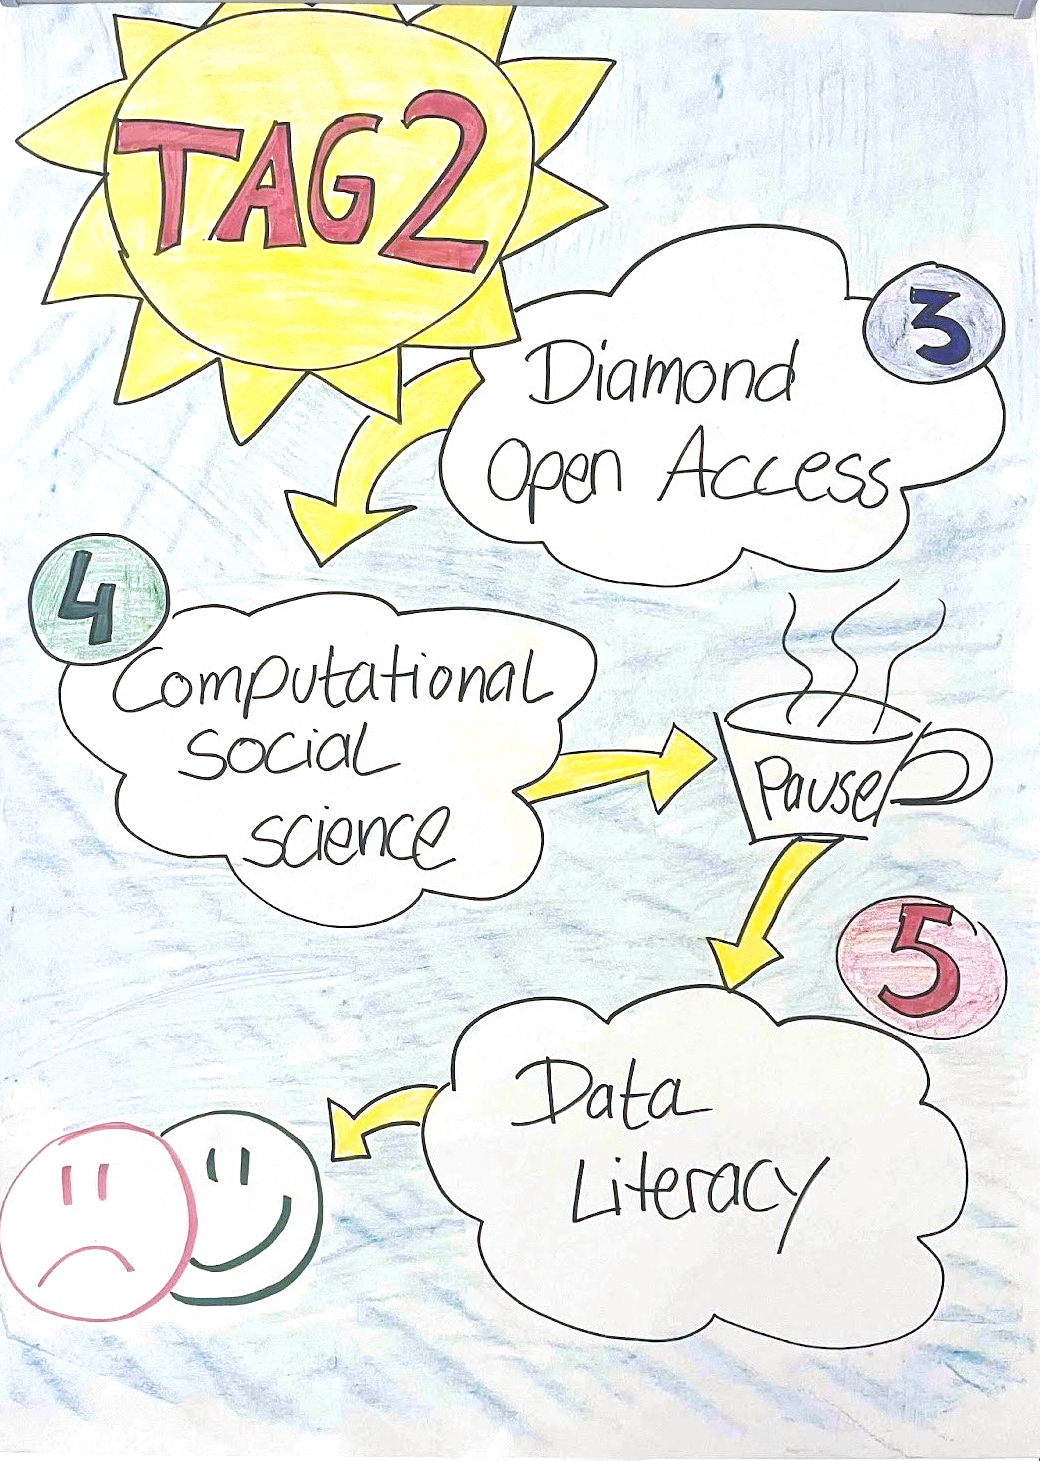 TAG 2
3
Diamond
Open Access
4
Computational
social
science
Pause
5
Data
Literacy